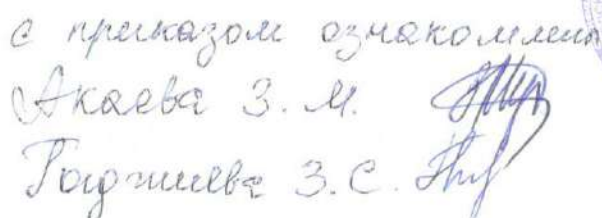 с приказом ознакомлены
Акаева З. М.
Гаджиева З. С.